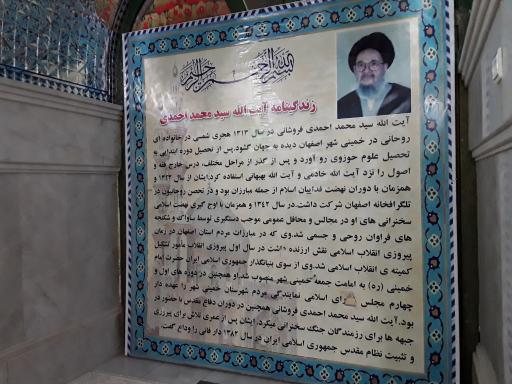 بسم الله الرحمن الرحیم
زندگینامه آیت الله سید محمد احمدی
آیت الله سید محمد احمدی فروشانی در سال ۱۳۱۳ هجری شمسی در خانواده ای
روحانی در خمینی شهر اصفهان دیده به جهان گشود.پس از تحصیل دوره ابتدایی به
تحصیل علوم حوزوی رو آورد و پس از گذر از مراحل مختلف، درس خارج فقه و
اصول را نزد آیت الله خادمی و آیت الله بهبهانی استفاده کرد.ایشان از سال ۱۳۴۲ و
همزمان با دوران نهضت فداییان اسلام از جمله مبارزان بود و در تحصن روحانیون در
تلگرافخانه اصفهان شرکت داشت.در سال ۱۳۴۲ و همزمان با اوج گیری نهضت اسلامی
سخنرانی های او در مجالس و محافل عمومی موجب دستگیری توسط ساواک و شکنجه
های فراوان روحی و جسمی شد.وی که در مبارزات مردم استان اصفهان در زمان
پیروزی انقلاب اسلامی نقش ارزنده داشت در سال اول پیروزی انقلاب مامور تشکیل
کمیته ی انقلاب اسلامی شد.وی از سوی بنیانگذار جمهوری اسلامی ایران حضرت امام
خمینی (ره) به امامت جمعه خمینی شهر منصوب شد.او همچنین در دوره های اول و
چهارم مجلس شورای اسلامی نمایندگی مردم شهرستان خمینی شهر را عهده دار
بود. آیت الله سید محمد احمدی فروشانی همچنین در دوران دفاع مقدس با حضور در
جبهه ها برای رزمندگان جنگ سخنرانی میکرد. ایشان پس از عمری تلاش برای پیروزی
و تثبیت نظام مقدس جمهوری اسلامی ایران در سال ۱۳۸۲ دار فانی را وداع گفت.